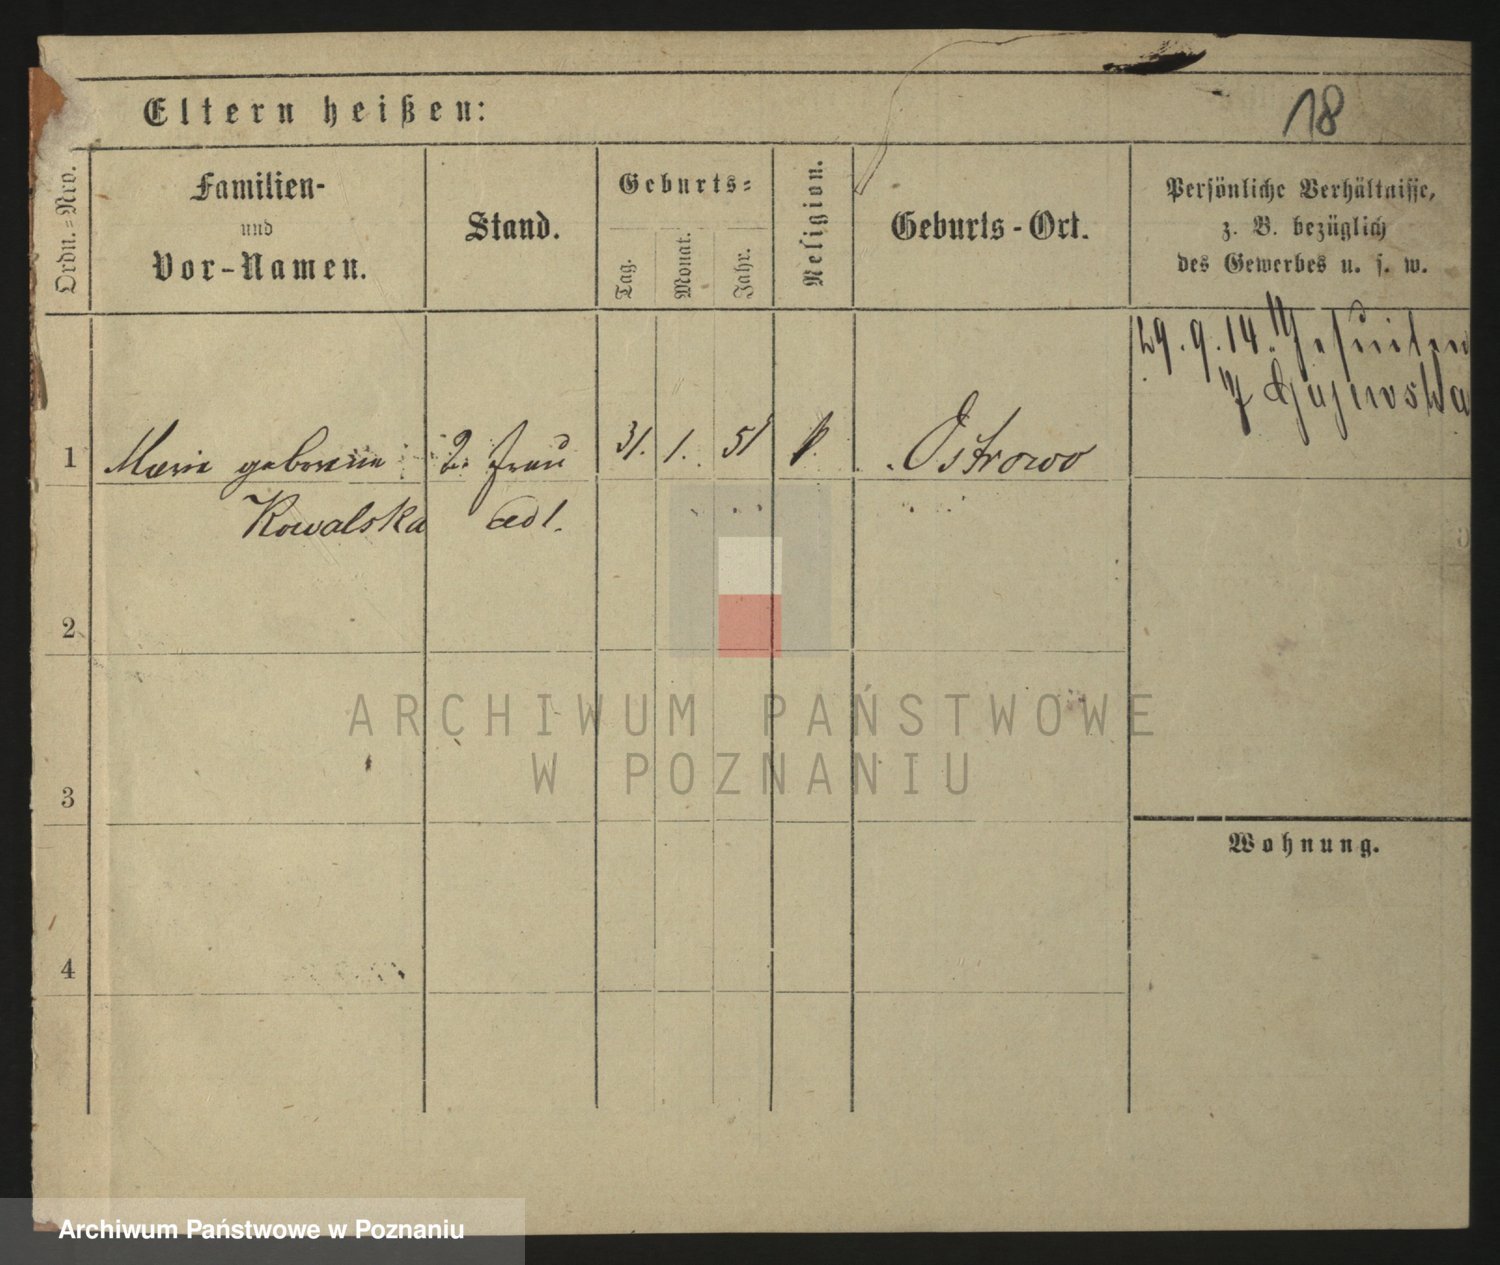 Eltern heißen:
18
Ordn.=Nro.
Familien-
und
Vor-Namen.
Stand.
Geburts=
Tag.
Monat.
Jahr.
Religion.
Geburts-Ort.
Persönliche Verhältnisse,
z. B. bezüglich
des Gewerbes u. s. w.
29.9.14. Jesuiten
7 Gajewska
1
Marie geborene
Kowalska
2. Frau
adl.
31. 1. 51
k.
Ostrowo
2
3
4
Wohnung.
ARCHIWUM PAŃSTWOWE
W POZNANIU
Archiwum Państwowe w Poznaniu